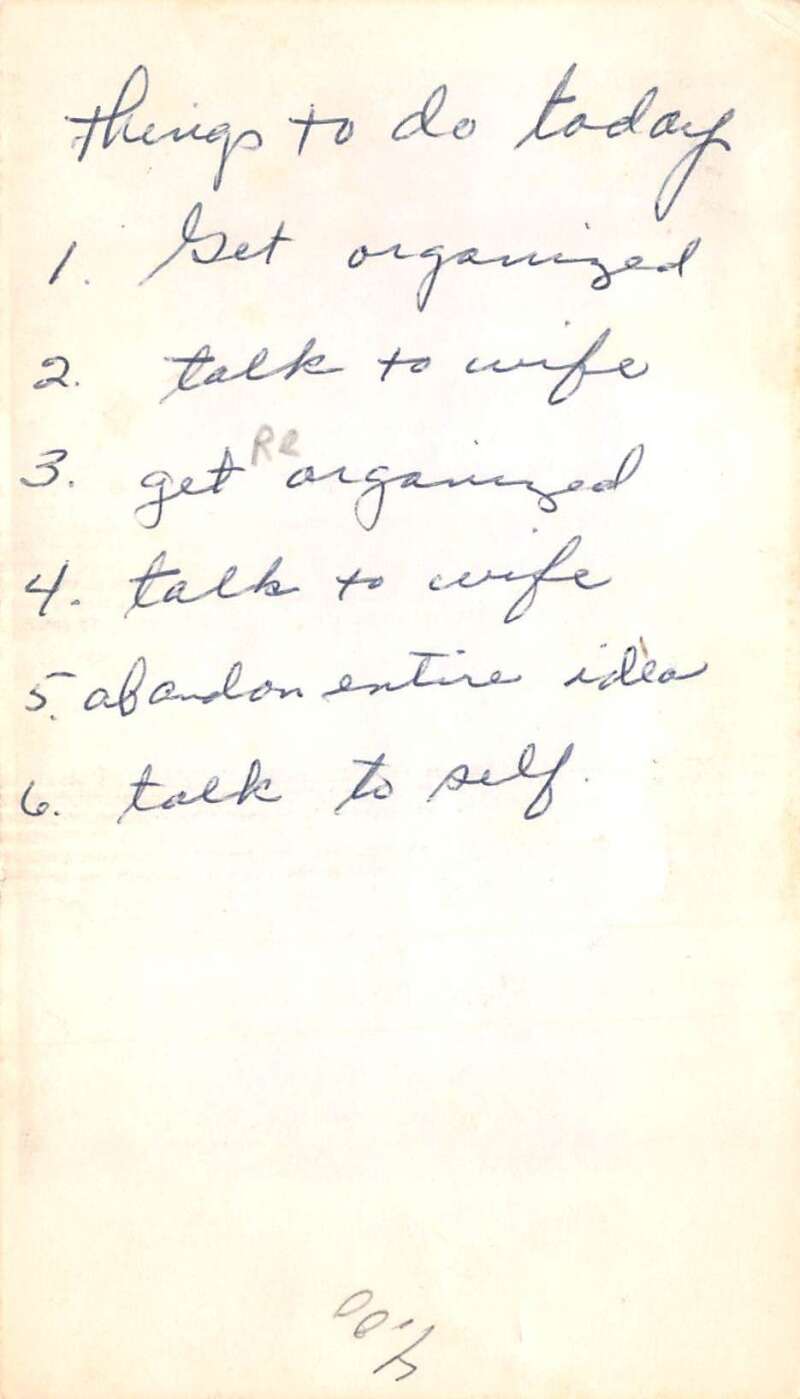 things to do today
1. Get organized
2. talk to wife
3. get Re organized
4. talk to wife
5. abandon entire idea
6. talk to self.